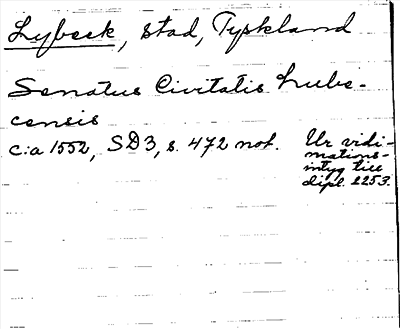 Lybeck, stad, Tyskland
Senatus Civitatis Lube-
censis
c:a 1552, SD3, s. 472 not.
Ur vidi-
mations-
intyg till
dipl. 2253.